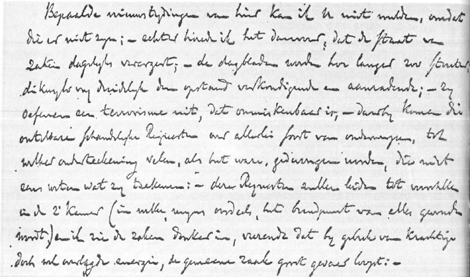 Bepaalde nieuwstydingen van hier kan ik U niet melden, omdat
die er niet zyn; – echter houd ik het daarvoor, dat de staat van
zaken dagelyks verergert; – de dagbladen worden hoe langer zoo stouter,
dikwyls vry duidelyk den opstand verkondigende en aanradende; – zy
oefenen een terrorisme uit, dat onmiskenbaar is, – daarby komen die
ontelbare schandelyke Requesten over allerlei soort van onderwerpen, tot
welker onderteekening velen, als het ware, gedwongen worden, die niet
eens weten wat zy teekenen: – deze Requesten zullen leiden tot
in de 2e Kamer (in welke, myns oordeels, het brandpunt van alles gevonden
wordt) en ik zie de zaken donker in, vreezende dat by gebrek van krachtige
doch wel overlegde energie, de gemeene zaak groot gevaar loopt: –